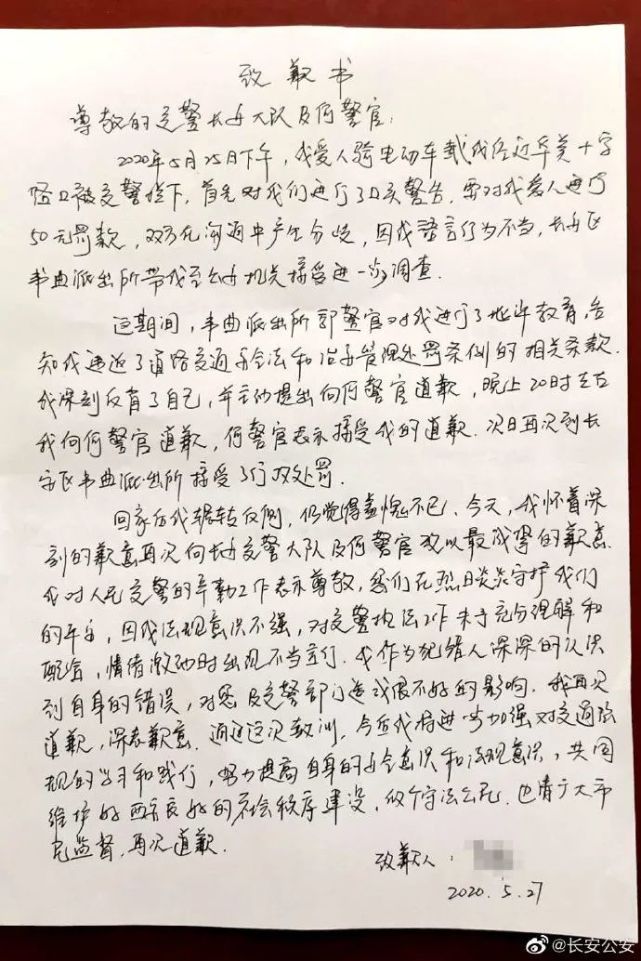 致歉书
尊敬的交警长安大队及何警官：
2020年5月25日下午，我爱人骑电动车载我经过华美十字
路口被交警拦下，首先对我们进行了口头警告，要对我爱人进行
50元罚款，双方在沟通中产生分歧，因我语言行为不当，长安区
韦曲派出所带我至公安机关接受进一步调查．
这期间，韦曲派出所郭警官对我进行了批评教育，告
知我违返了道路交通安全法和治安管理处罚条例的相关条款．
我深刻反省了自己，并主动提出向何警官道歉，晚上20时左右
我向何警官道歉，何警官表示接受我的道歉．次日再次到长
安区韦曲派出所接受了行政处罚．
回家后我辗转反侧，仍觉得羞愧不已．今天，我怀着深
刻的歉意再次向长安交警大队及何警官致以最诚挚的歉意．
我对人民交警的辛勤工作表示尊敬，您们在烈日炎炎守护我们
的平安，因我法规意识不强，对交警执法工作未于充分理解和
配合，情绪激动时出现不当言行．我作为犯错人深深的认识
到自身的错误，对您及交警部门造成很不好的影响．我再次
道歉，深表歉意．通过这次教训，今后我将进一步加强对交通法
规的学习和践行，努力提高自身的安全意识和法规意识，共同
维护好西安良好的社会秩序建设，做个守法公民．也请广大市
民监督．再次道歉．
致歉人：
2020．5．27
@长安公安